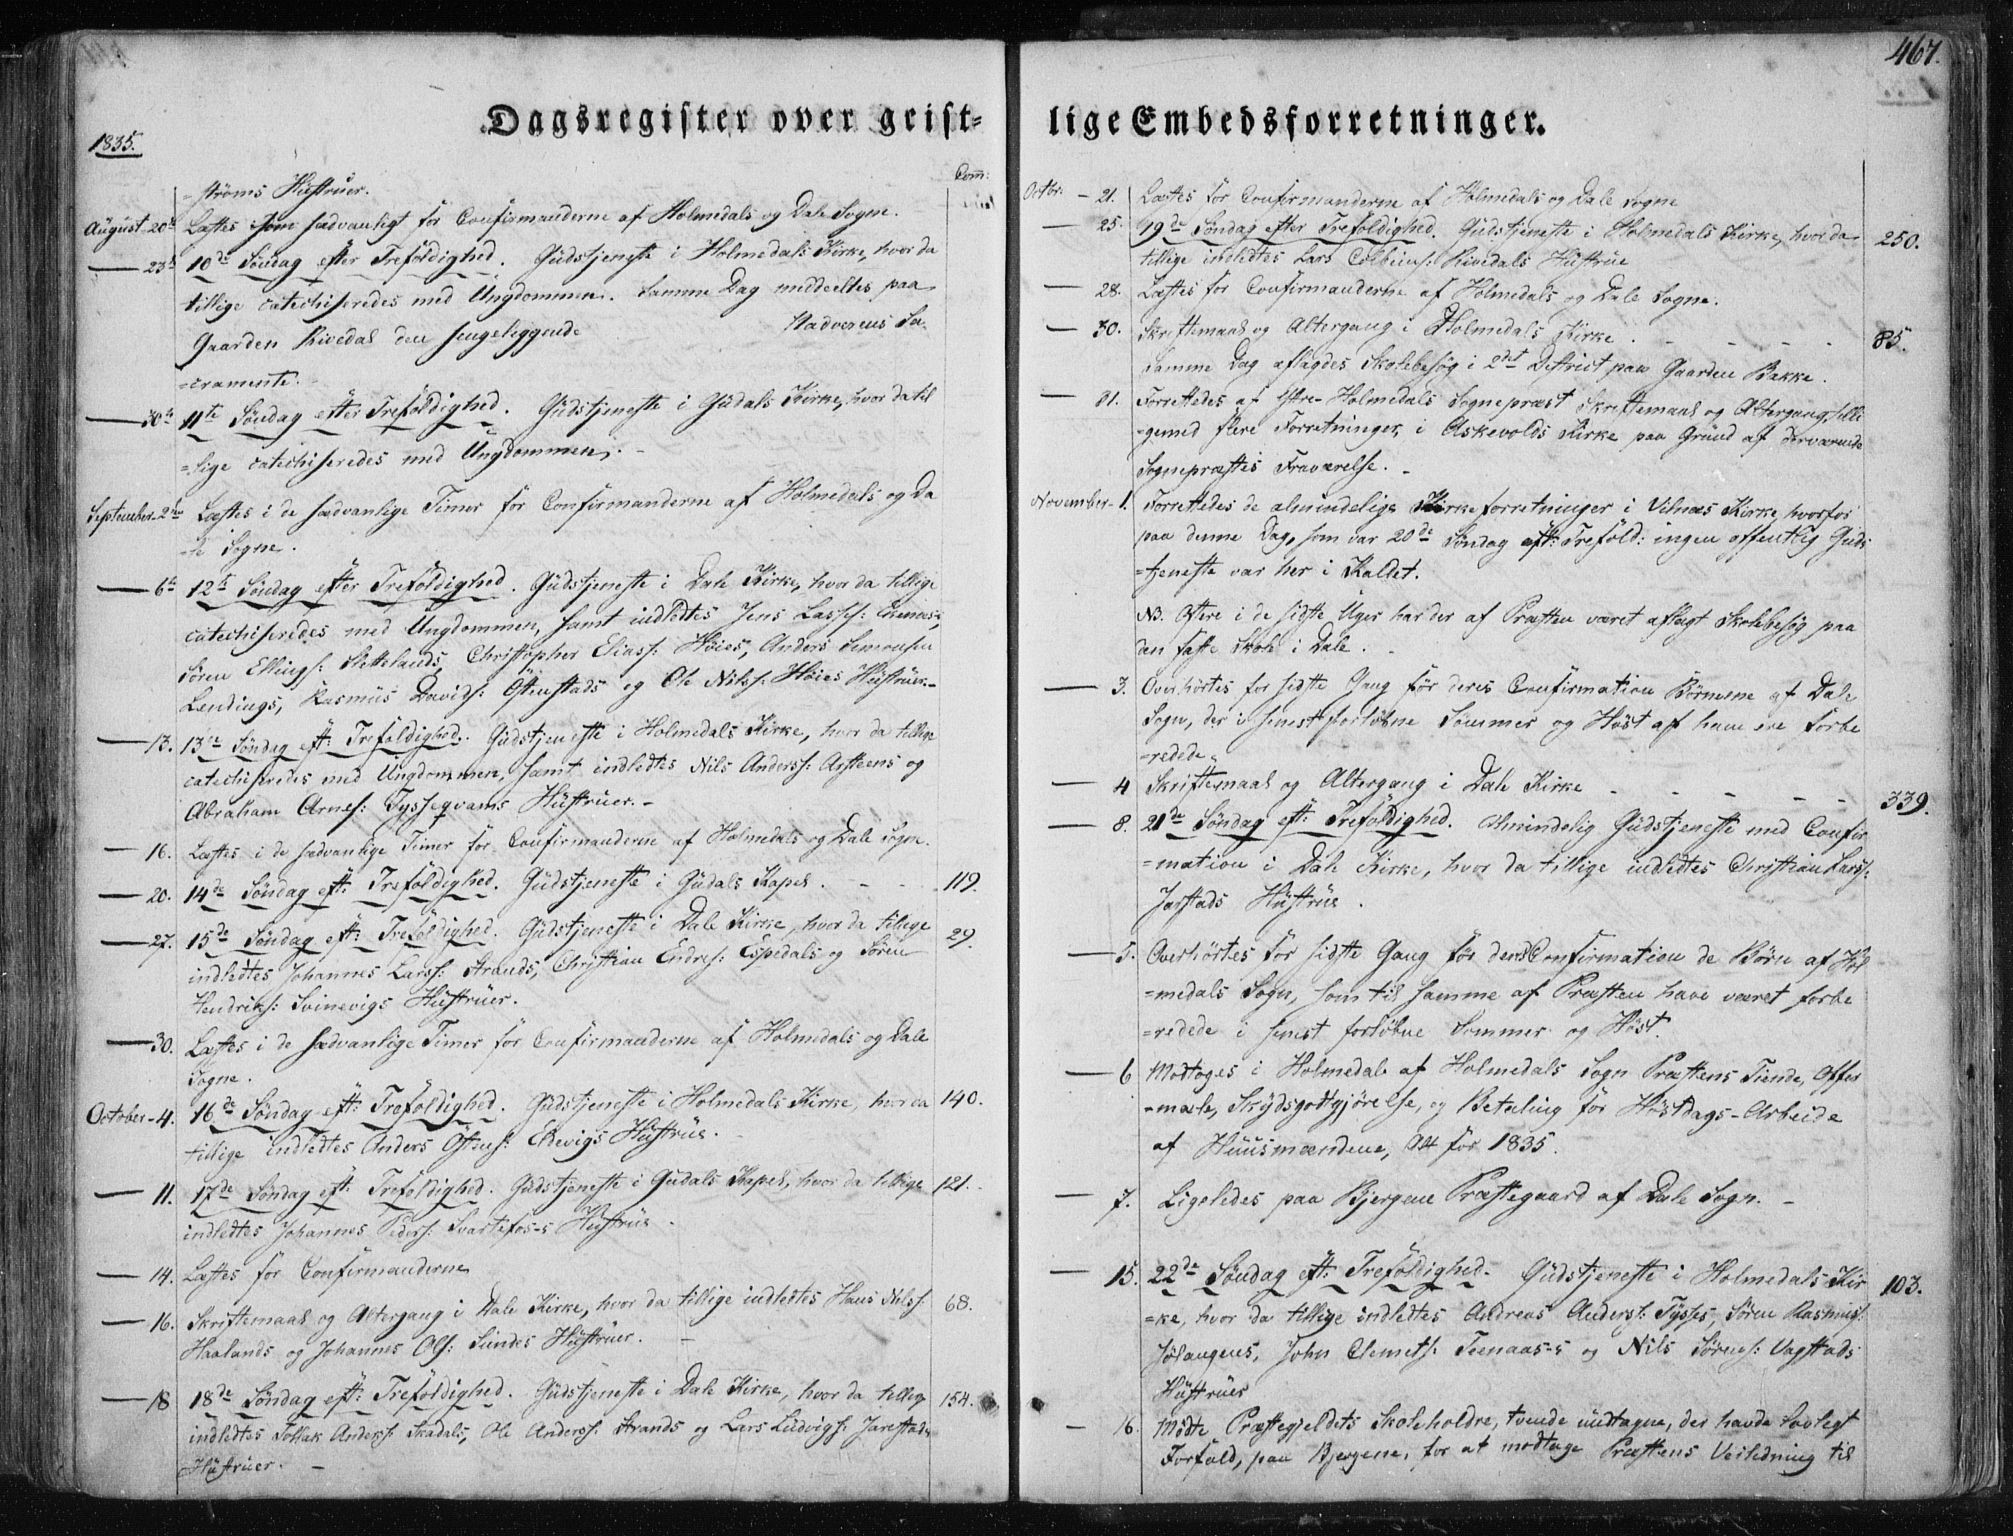 467.
Dagsregister over geist-
lige Embedsforretninger.
1835.
Com:
-ströms Hustruer.
August 20de Læstes som sædvanligt for Confirmanderne af Holmedals og Dale Sogne.
— 23de 10de Söndag efter Trefoldighed. Gudstjeneste i Holmedals Kirke, hvor da
tillige catechiseredes med Ungdommen. Samme Dag meddeeltes paa
Gaarden Rivedal den sengeliggende Nadverens Sa-
=cramente.
— 30te 11te Söndag efter Trefoldighed. Gudstjeneste i Gudals Kirke, hvor da til
=lige catechiseredes med Ungdommen.
September 2den Læstes i de sædvanlige Timer for Confirmanderne af Holmedals og Da
=le Sogne.
— 6te 12te Söndag efter Trefoldighed. Gudstjeneste i Dale Kirke, hvor da tillige
catechiseredes med Ungdommen, samt indledtes Jens Lasses:
Sören Ellings: Slettelands, Christopher Elias: Höies, Anders Simonsen
Lendings, Rasmus Davids: Ostenstads og Ole Nils: Höies Hustruer.-
— 13. 13de Söndag eft: Trefoldighed. Gudstjeneste i Holmedals Kirke, hvor da tillige
catechiseredes med Ungdommen, samt indledtes Nils Anders: Arsteens og
Abraham Arnes: Tysseqvams Hustruer.-
— 16. Læstes i de sædvanlige Timer for Confirmanderne af Holmedals og Dale Sogn.
— 20. 14de Söndag eft: Trefoldighed. Gudstjeneste i Gudals Kapel. - - - 119.
— 27. 15de Söndag eft: Trefoldighed. Gudstjeneste i Dale Kirke, hvor da tillige 29.
indledtes Johannes Lars: Strands, Christian Endres: Espedals og Sören
Hendriks: Svinevigs Hustruer.
— 30. Læstes i de sædvanlige Timer for Confirmanderne af Holmedals og Dale
Sogne.
October - 4. 16de Söndag eft: Trefoldighed. Gudstjeneste i Holmedals Kirke, hvor da 140.
tillige indledtes Anders Ostens: Hustrue.
— 11. 17de Söndag eft: Trefoldighed. Gudstjeneste i Gudals Kapel, hvor da tillige 121.
indledtes Johannes Peders: Svartefos-s Hustrue.
— 14. Læstes for Confirmanderne
— 16. Skriftemaal og Altergang i Dale Kirke, hvor da tillige indledtes Hans Nils: 68.
Haalands og Johannes Ols: Sundes Hustruer.
— 18 18de Söndag eft: Trefoldighed. Gudstjeneste i Dale Kirke, hvor da tillige 154.
indledtes Tollak Anders: Skadals, Ole Anders: Strands og Lars Ludvigs: Jarestads
Hustruer. -
Octbr: - 21. Læstes for Confirmanderne af Holmedals og Dale Sogne
— 25. 19de Söndag efter Trefoldighed. Gudstjeneste i Holmedals Kirke, hvor da 250.
tillige indledtes Lars Rivedals Hustrue
— 28. Læstes for Confirmanderne af Holmedals og Dale Sogne.
— 30. Skriftemaal og Altergang i Holmedals Kirke. - - - - 85.
Samme Dag aflagdes Skolebesøg i 2det District paa Gaarden Bakke.
— 31. Forrettedes af Ytre-Holmedals Sognepræst Skriftemaal og Altergang, tilli
=gemed flere Forretninger, i Askevolds Kirke paa Grund af derværende
Sognepræstes Fraværelse. -
November - 1. Forrettedes de almindelige Kirkeforretninger i Vilnæs Kirke hvorfor
paa denne Dag, som var 20de Söndag eft: Trefold: ingen offentlig Guds
=tjeneste var her i Kaldet.
NB. Oftere i de sidste Uger har der af Præsten været aflagt Skolebesøg paa
den faste Skole i Dale.
— 3. Overhørtes for sidste Gang för deres Confirmation Börnene af Dale
Sogn, der i senest forløbne Sommer og Höst af ham ere forbe
=redede.
— 4 Skriftemaal og Altergang i Dale Kirke - - - - - 339.
— 8. 21de Söndag eft: Trefoldighed. Almindelig Gudstjeneste med Confir
=mation i Dale Kirke, hvor da tillige indledtes Christian Lars:
Jarstads Hustrue.
— 5. Overhörtes for sidste Gang för deres Confirmation de Börn af Hol
=medals Sogn, som til samme af Præsten have været forbe
=redede i senest forløbne Sommer og Höst.
— 6 Modtoges i Holmedal af Holmedals Sogn Præstens Tiende, Offer
=mæle, Skydsgodtgjörelse, og Betaling for Höstdags-Arbeide
af Huusmændene, Alt for 1835.
— 7. Ligeledes paa Bjergene Præstegaard af Dale Sogn. -
— 15. 22de Söndag eft: Trefoldighed. Gudstjeneste i Holmedals Kir 103.
=ke, hvor da tillige indledtes Andreas Anders: Tysses, Sören Rasmus:
Sölangens, John Clemets: Teenaas-s og Nils Sörens: Vagstads
Hustruer
— 16. Mödte Præstegjeldets Skoleholdre, tvende undtagne, der havde lovligt
Forfald, paa Bjergene, for at modtage Præstens Veiledning til